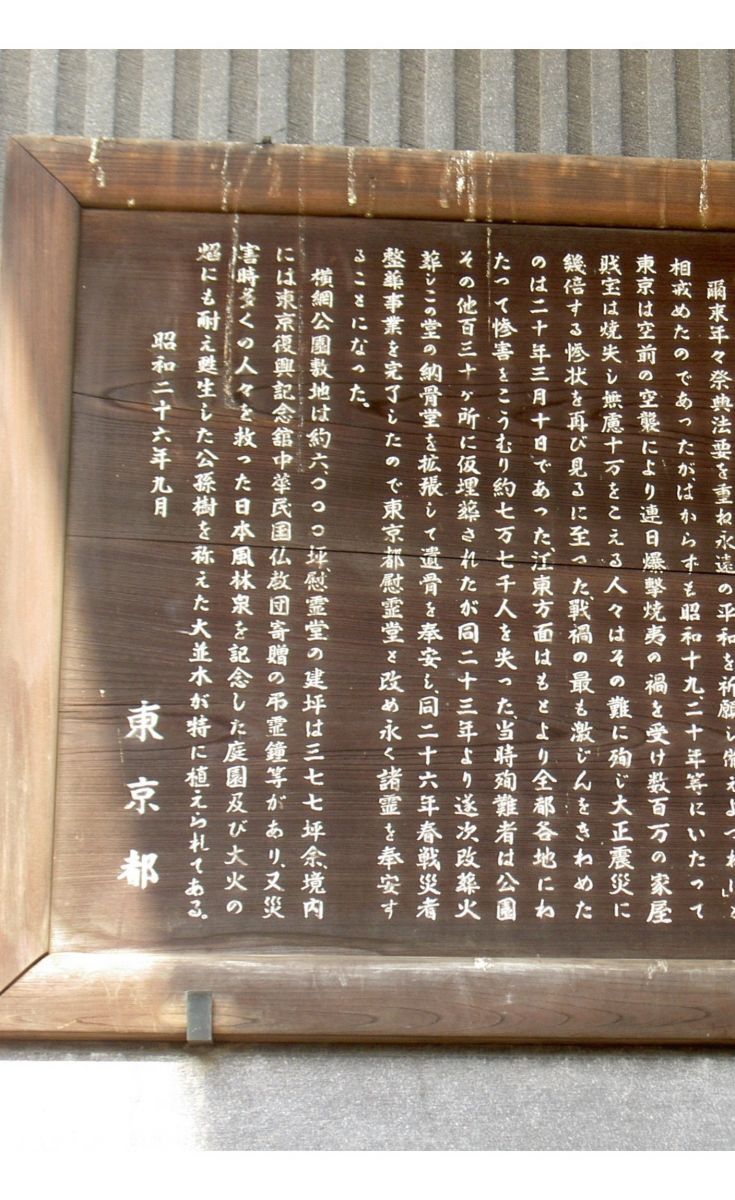 爾来年々祭典法要を重ね永遠の平和を祈願し
相戒めたのであったがはからずも昭和十九、二十年等にいたって
東京は空前の空襲により連日爆撃焼夷の禍を受け数百万の家屋
財宝は焼失し無慮十万をこえる人々はその難に殉じ大正震災に
幾倍する惨状を再び見るに至った、戦禍の最も激じんをきわめた
のは二十年三月十日であった、江東方面はもとより全都各地にわ
たって惨害をこうむり約七万七千人を失った当時殉難者は公園
その他百三十ヶ所に仮埋葬されたが同二十三年より逐次改葬火
葬しこの堂の納骨堂を拡張して遺骨を奉安し、同二十六年春戦災者
整葬事業を完了したので東京都慰霊堂と改め永く諸霊を奉安す
ることになった。
横網公園敷地は約六、〇〇〇坪、慰霊堂の建坪は三七七坪余、境内
には東京復興記念館中華民国仏教団寄贈の弔霊鐘等があり、又災
害時多くの人々を救った日本風林泉を記念した庭園及び大火の
焔にも耐え甦生した公孫樹を称えた大並木が特に植えられてある。
昭和二十六年九月
東京都